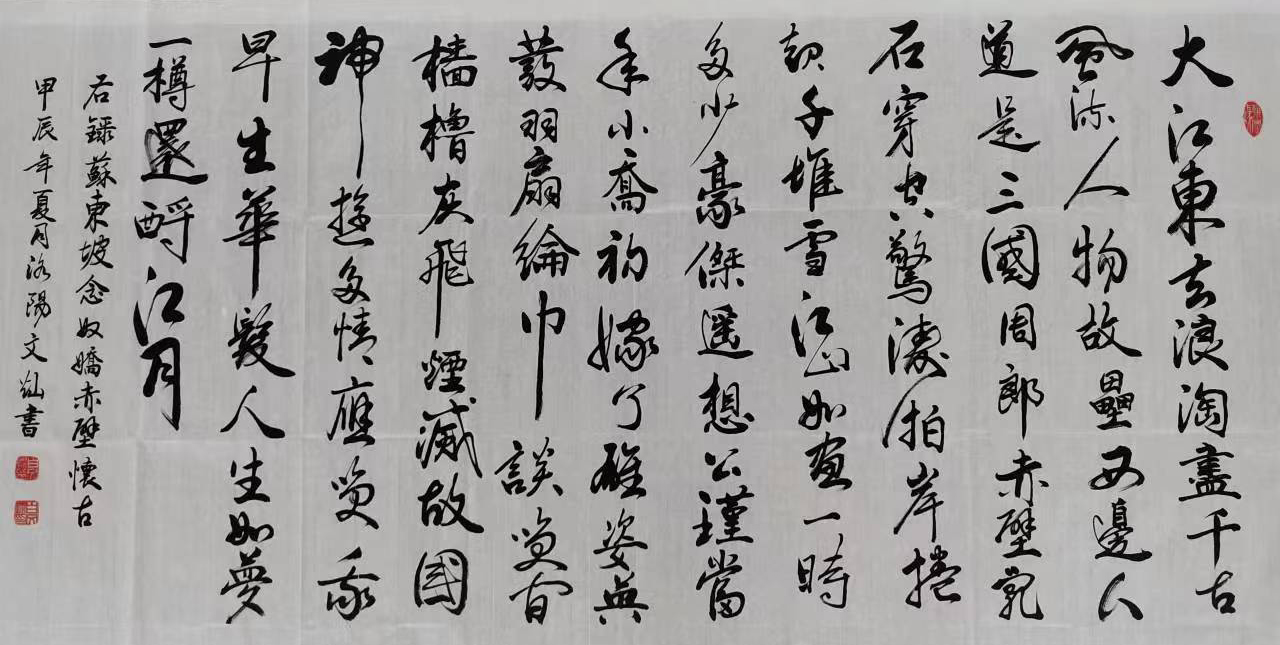 大江東去浪淘盡千古
風流人物故壘西邊人
道是三國周郎赤壁亂
石穿空驚濤拍岸捲
起千堆雪江山如畫一時
多少豪傑遥想公瑾當
年小喬初嫁了雄姿英
發羽扇綸巾談笑間
檣櫓灰飛煙滅故國
神遊多情應笑我
早生華髮人生如夢
一樽還酹江月
右錄蘇東坡念奴嬌赤壁懷古
甲辰年夏月洛陽文灿書